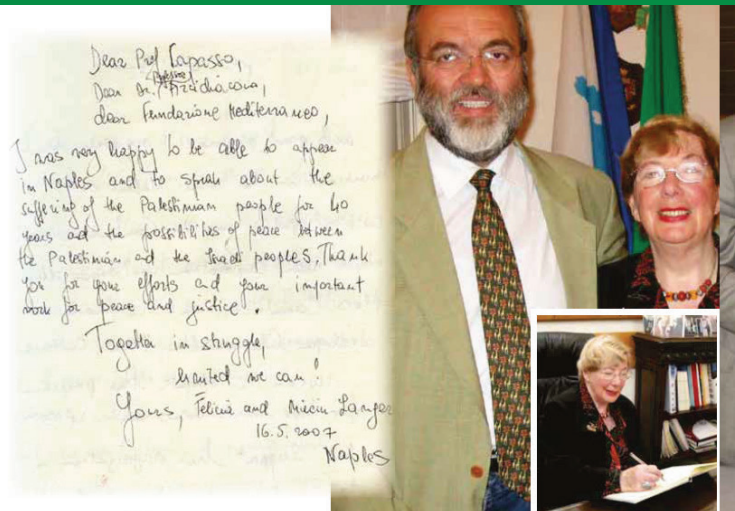 Dear Prof Capasso,
Dear Dr.
dear Fundazione Mediterraneo,
I was very happy to be able to appear
in Naples and to speak about the
suffering of the Palestinian people for 40
years and the possibilites of peace between
the Palestinian and the Israeli peoples. Thank
you for your efforts and your important
work for peace and justice.
Together in struggle,
we can!
Yours, Felicia and Langer
16.5.2007
Naples